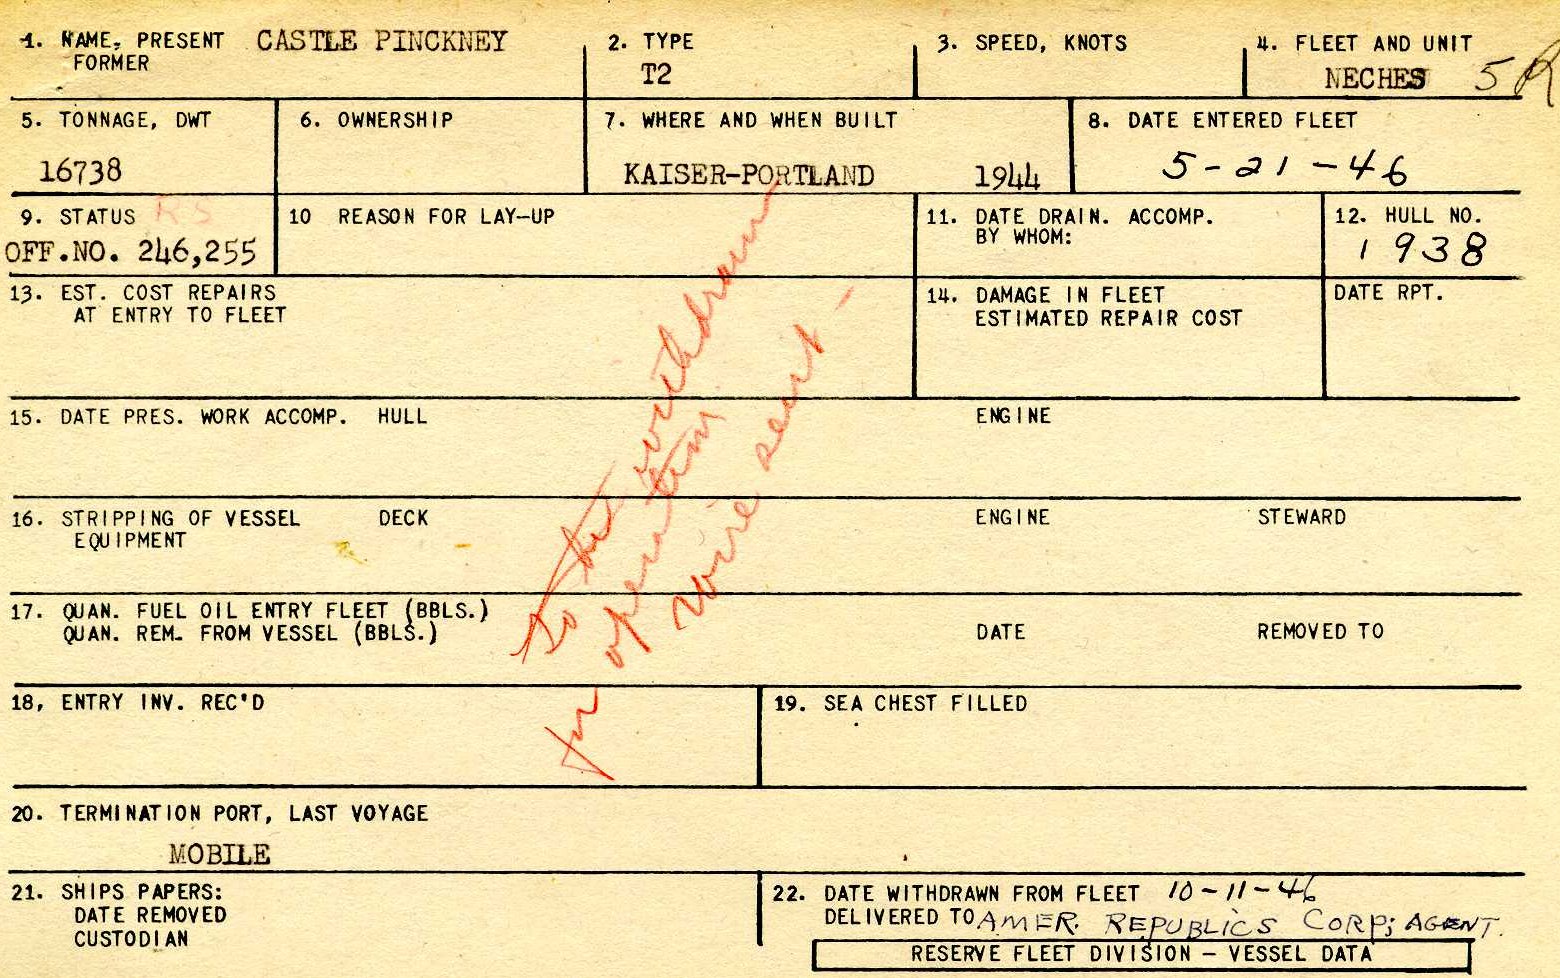 1. NAME, PRESENT CASTLE PINCKNEY
FORMER
2. TYPE
T2
3. SPEED, KNOTS
4. FLEET AND UNIT
NECHES 5R
5. TONNAGE, DWT
16738
6. OWNERSHIP
7. WHERE AND WHEN BUILT
KAISER-PORTLAND 1944
8. DATE ENTERED FLEET
5-21-46
9. STATUS RS
OFF.NO. 246,255
10 REASON FOR LAY-UP
11. DATE DRAIN. ACCOMP.
BY WHOM:
12. HULL NO.
1938
13. EST. COST REPAIRS
AT ENTRY TO FLEET
14. DAMAGE IN FLEET
ESTIMATED REPAIR COST
DATE RPT.
15. DATE PRES. WORK ACCOMP. HULL ENGINE
16. STRIPPING OF VESSEL DECK ENGINE STEWARD
EQUIPMENT
17. QUAN. FUEL OIL ENTRY FLEET (BBLS.)
QUAN. REM. FROM VESSEL (BBLS.) DATE REMOVED TO
To be withdrawn
for operation
wire sent -
18, ENTRY INV. REC'D
19. SEA CHEST FILLED
20. TERMINATION PORT, LAST VOYAGE
MOBILE
21. SHIPS PAPERS:
DATE REMOVED
CUSTODIAN
22. DATE WITHDRAWN FROM FLEET 10-11-46
DELIVERED TO AMER. REPUBLICS CORP; AGENT.
RESERVE FLEET DIVISION - VESSEL DATA